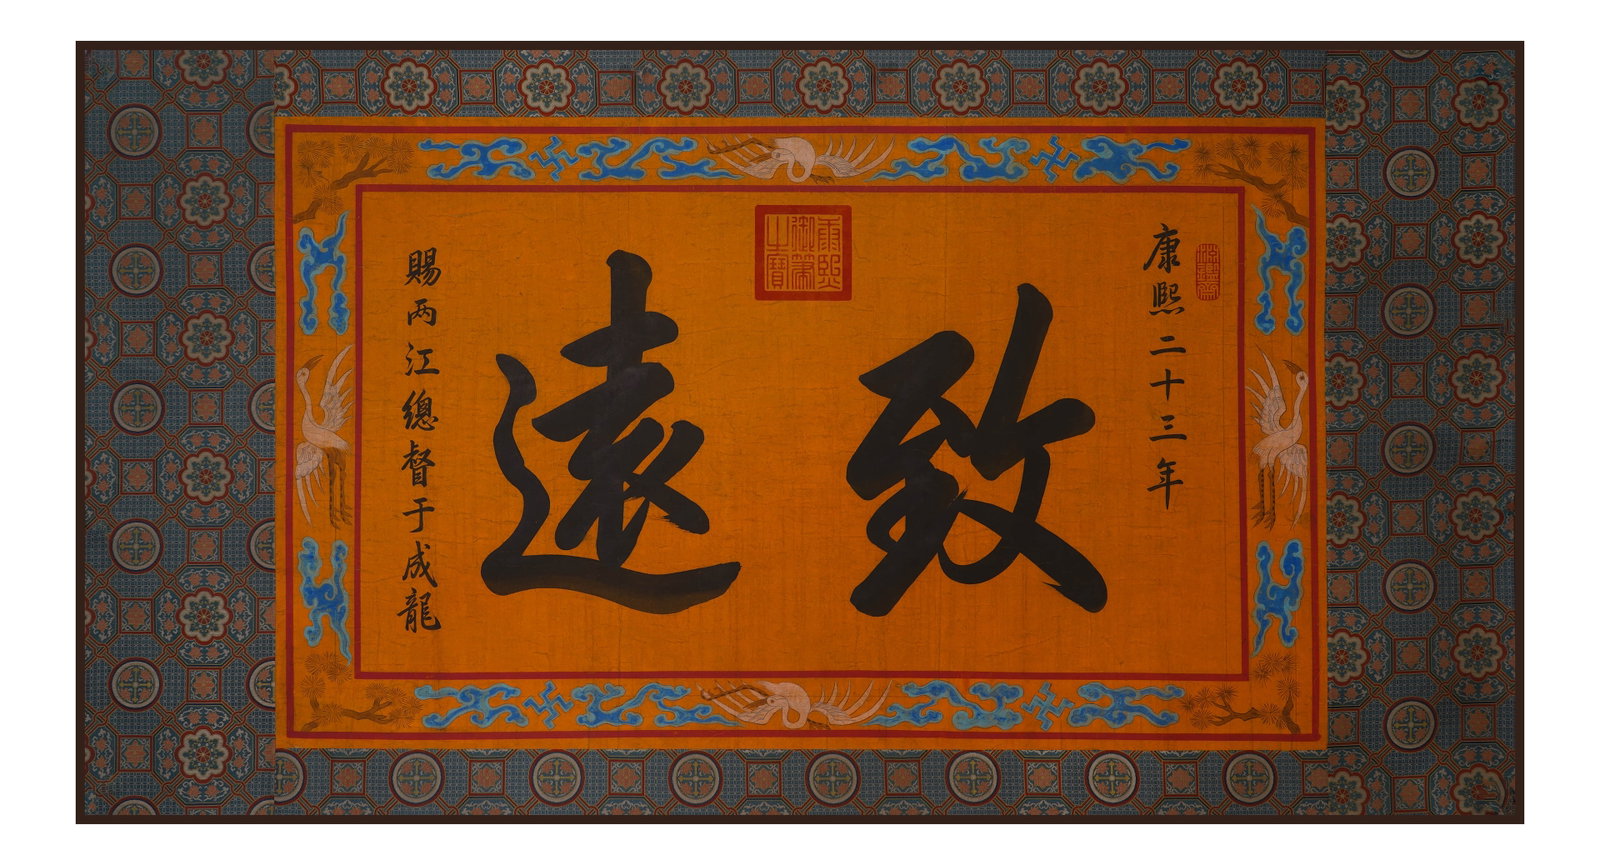 康熙二十三年
致遠
康熙御筆之寶
賜两江總督于成龍